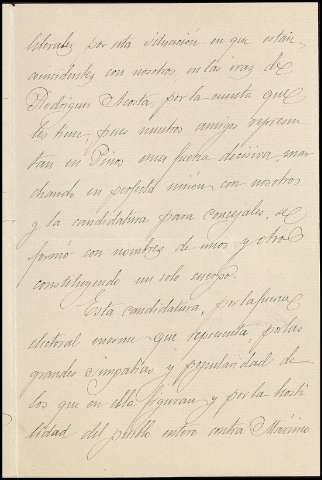 liberales por esta situación en que están,
coincidentes con nosotros, en las iras de
Rodríguez Acosta, por la cuenta que
les tiene, pues nuestros amigos represen
tan en Pinos una fuerza decisiva, mar
chando en perfecta unión, con nosotros
y la candidatura para concejales, se
formó con nombres de unos y otros
constituyendo un solo cuerpo.
Esta candidatura, por la fuerza
electoral enorme que representa, por las
grandes simpatías y popularidad de
los que en ella figuran y por la hosti
lidad del pueblo entero contra Máximo